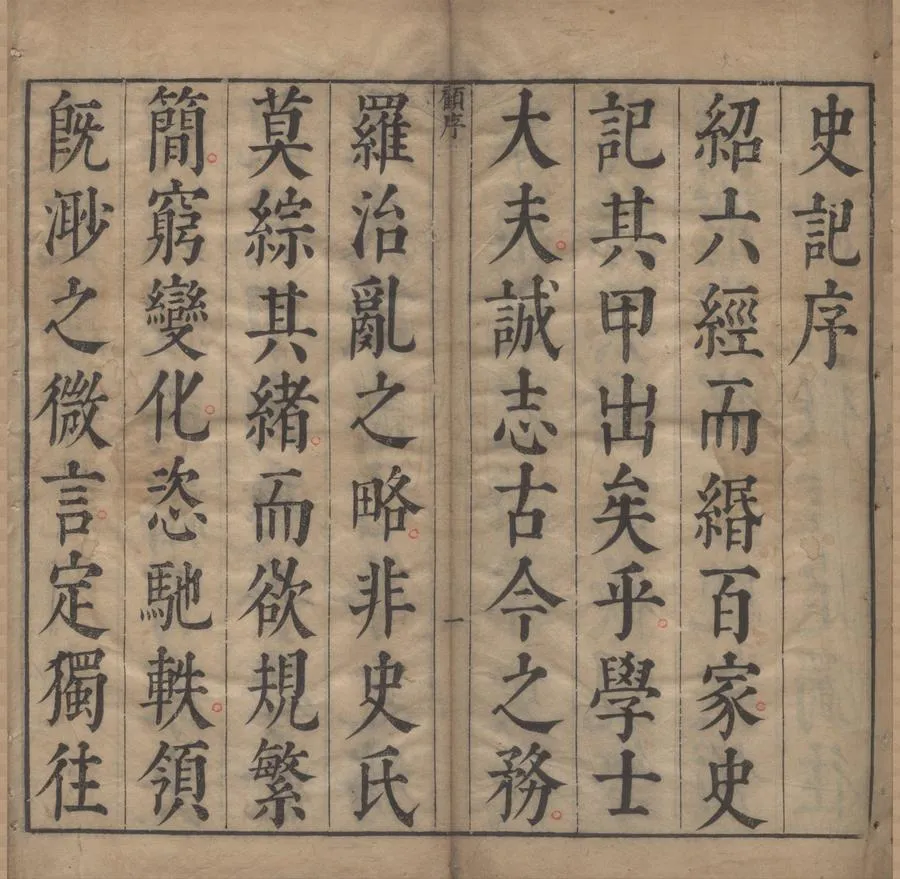 史記序
紹六經而緝百家史
記其甲出矣乎學士
大夫誠志古今之務
顧序
一
羅治亂之略非史氏
莫綜其緒而欲規繁
簡窮變化恣馳軼領
既渺之微言定獨往